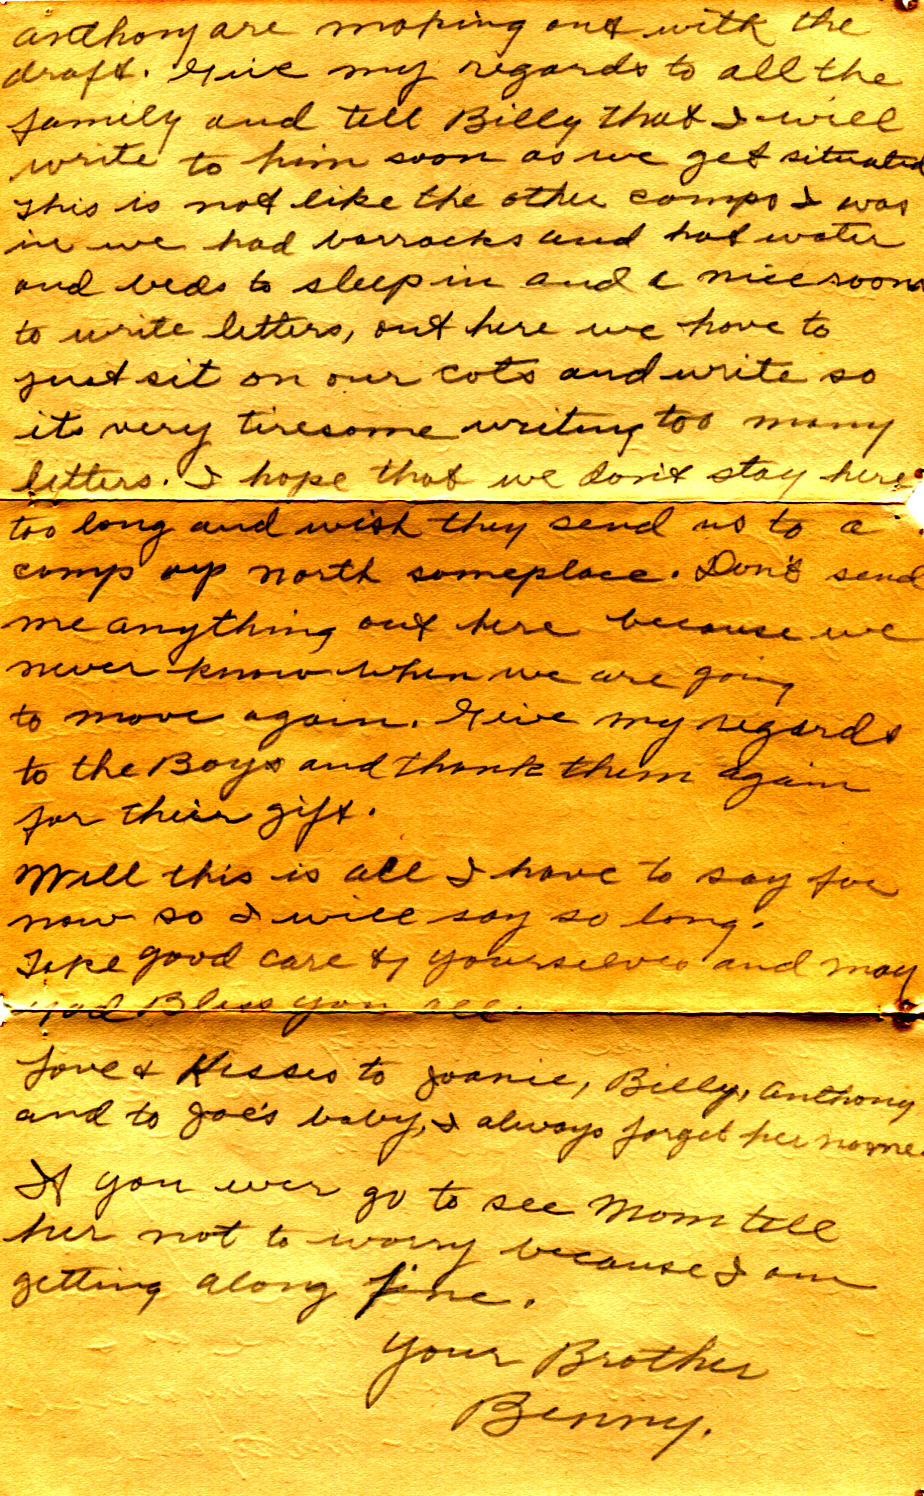 Anthony are making out with the
draft. Give my regards to all the
family and tell Billy that I will
write to him soon as we get situated
This is not like the other camps I was
in we had barracks and hot water
and beds to sleep in and a nice room
to write letters, out here we have to
just sit on our cots and write so
its very tiresome writing too many
letters. I hope that we don't stay here
too long and wish they send us to a
camp up north someplace. Don't send
me anything out here because we
never know when we are going
to move again. Give my regards
to the Boys and thank them again
for their gift.
Well this is all I have to say for
now so I will say so long.
Take good care of yourselves and may
God Bless you all.
Love & Kisses to Joanie, Billy, Anthony
and to Joe's baby, I always forget her name.
If you ever go to see Mom tell
her not to worry because I am
getting along fine.
Your Brother
Benny.